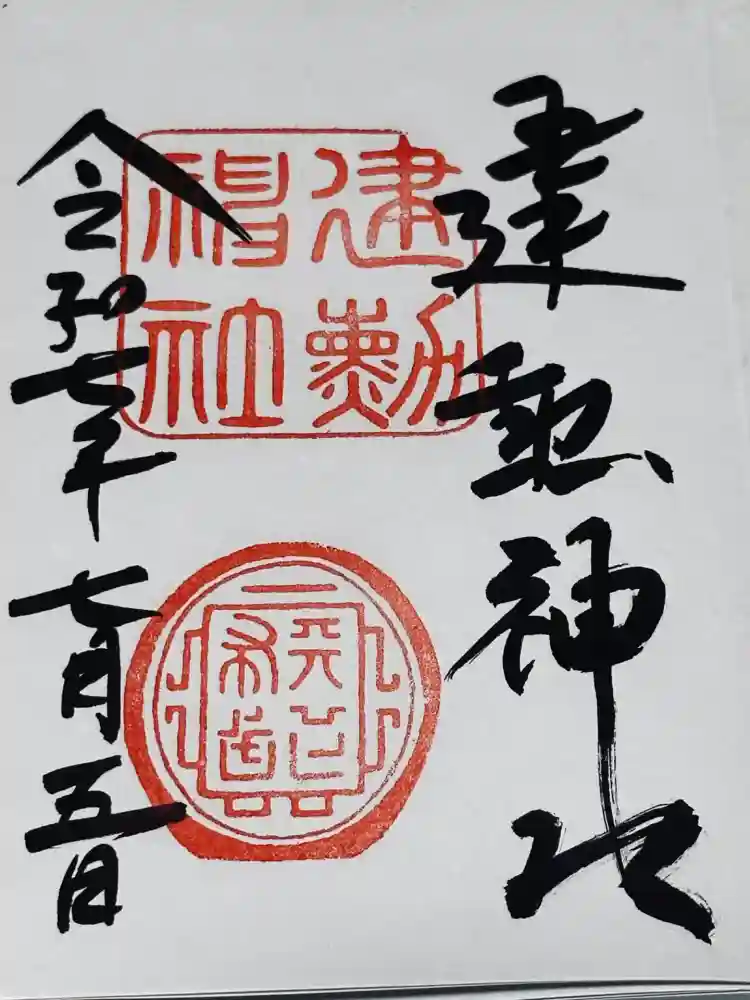 建勲神社
建勳
神社
令和七年七月五日